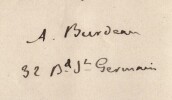 A. Burdeau
32 Bd St Germain